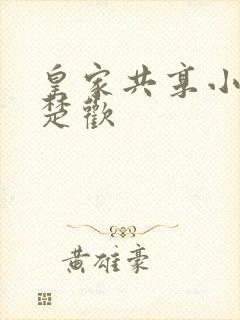 皇家共享小
楚歡
黄雄豪